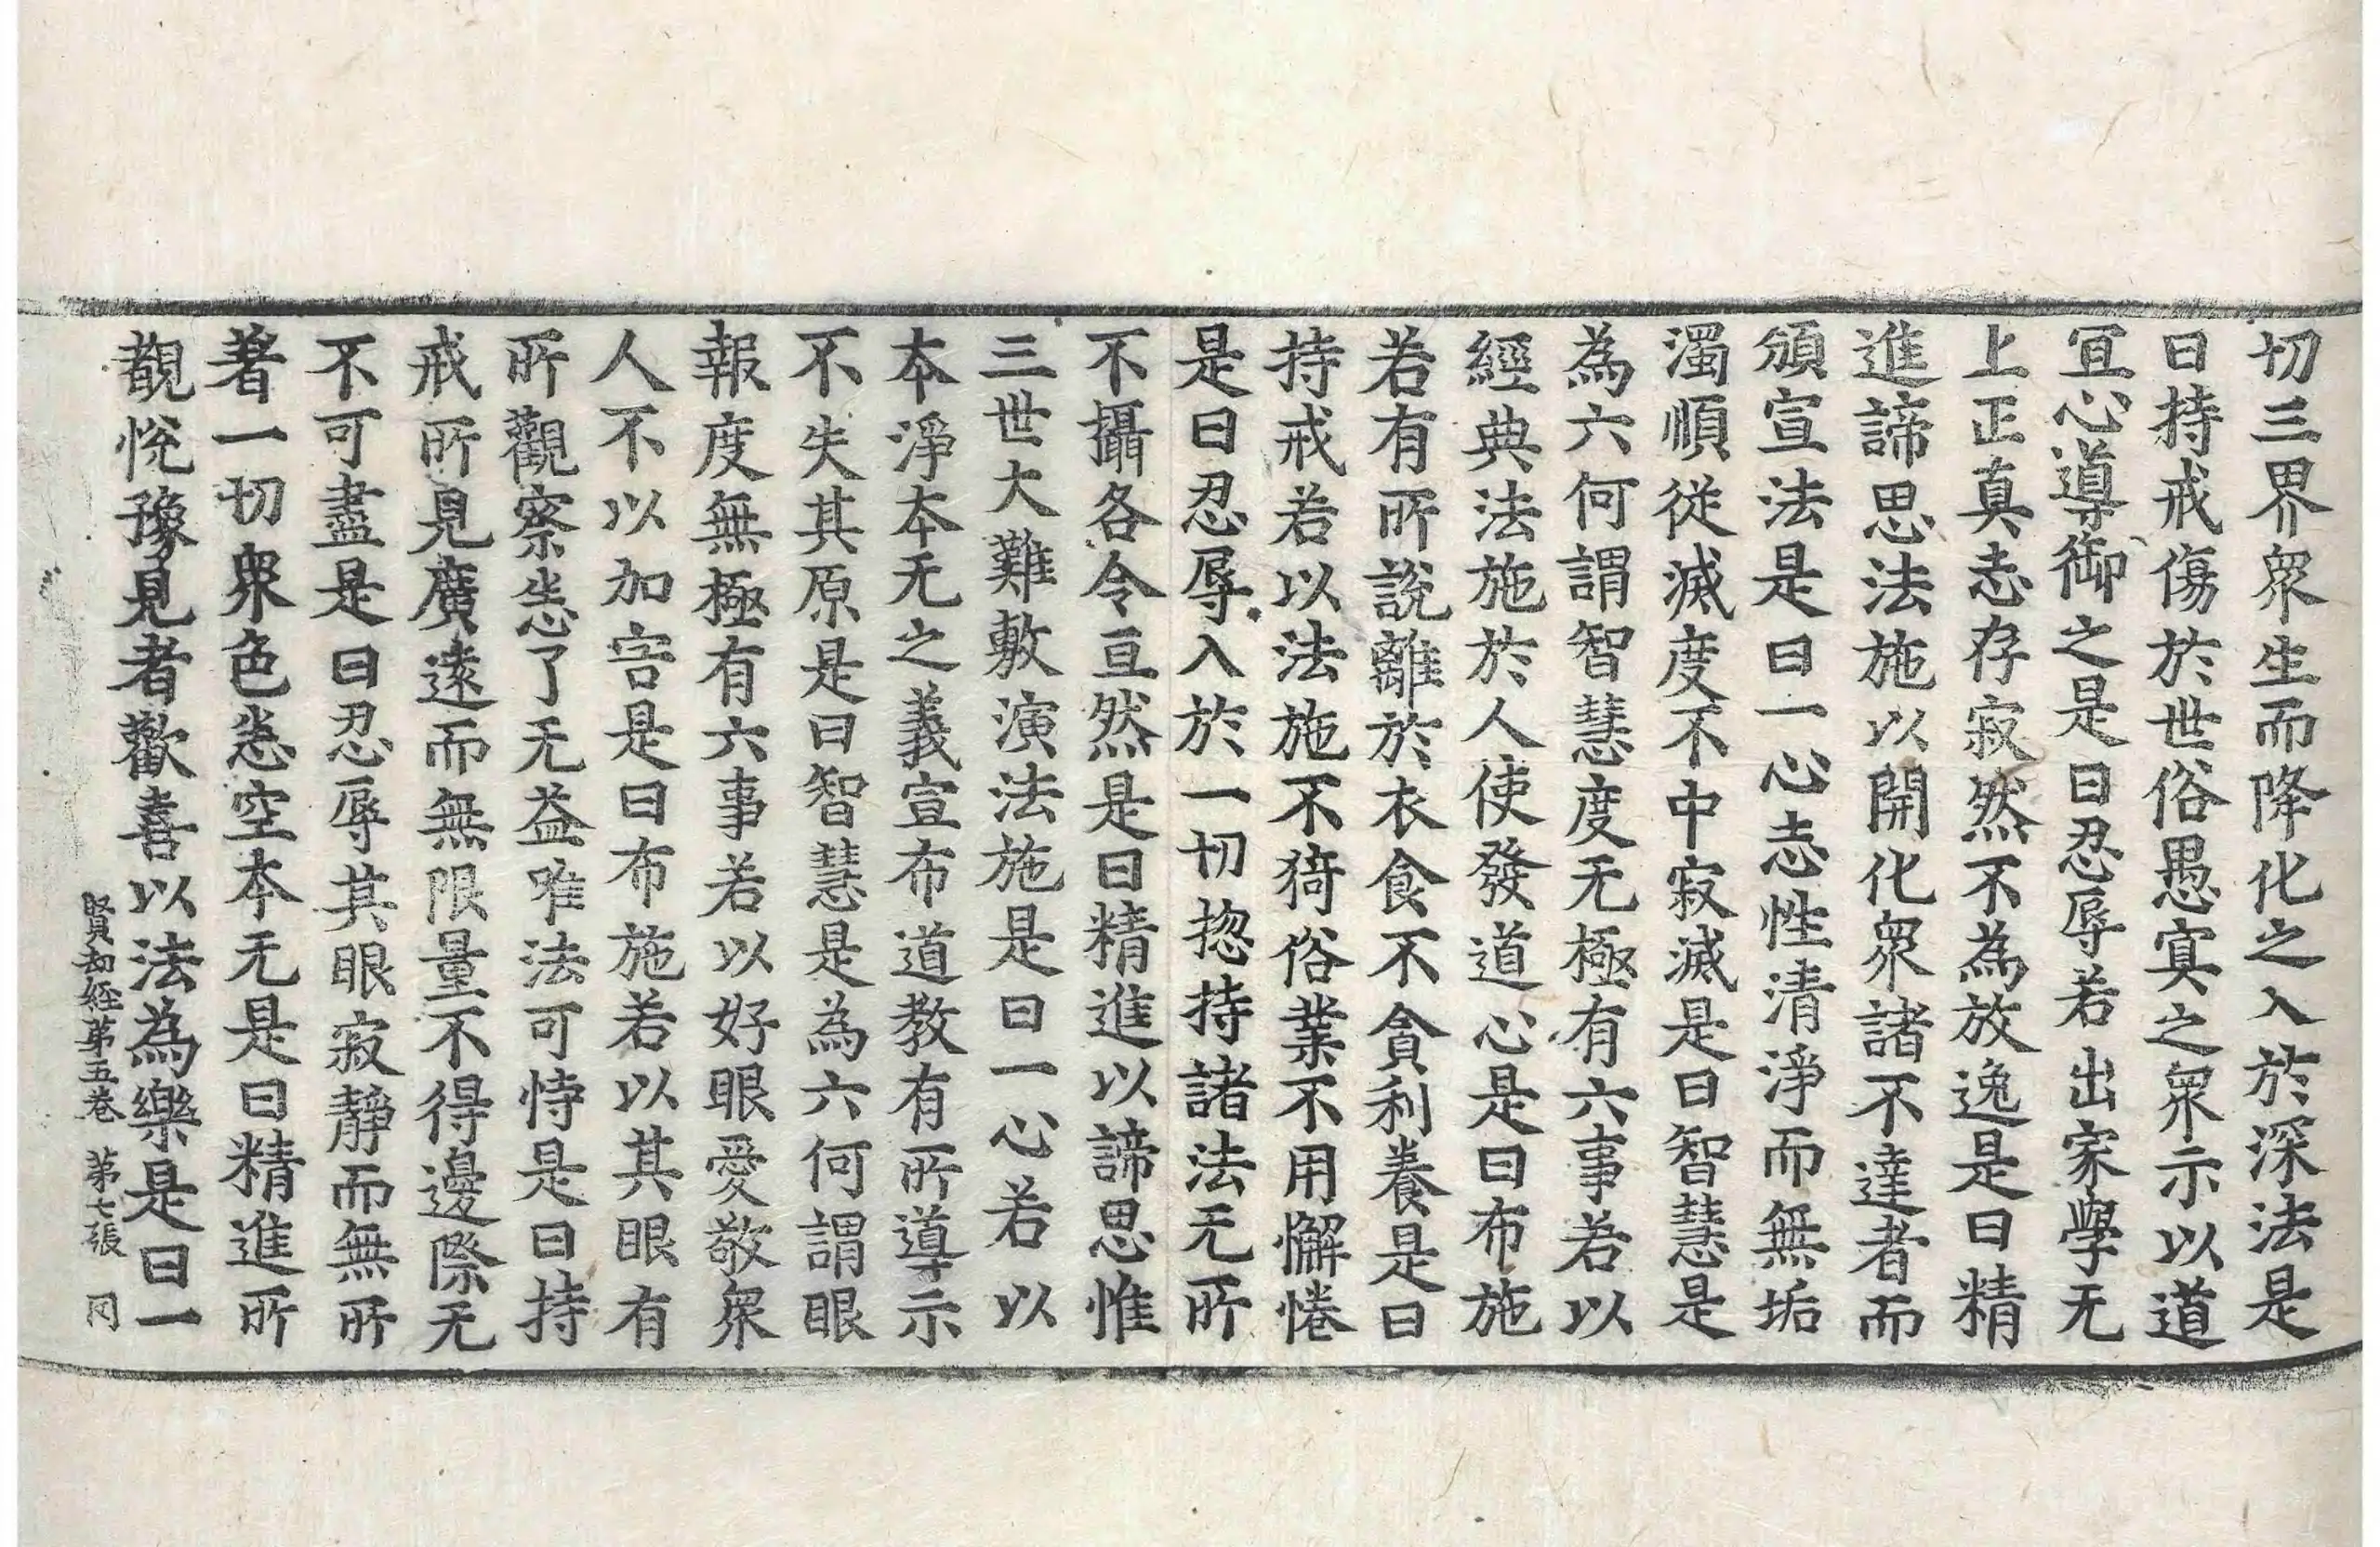 切三界衆生而降化之入於深法是
曰持戒傷於世俗愚冥之衆示以道
冝心導御之是曰忍辱若出家學无
上正真志存寂然不為放逸是曰精
進諦思法施以開化衆諸不達者而
頒宣法是曰一心志性清淨而無垢
濁順從滅度不中寂滅是曰智慧是
為六何謂智慧度无極有六事若以
經典法施於人使發道心是曰布施
若有所說離於衣食不貪利養是曰
持戒若以法施不猗俗業不用懈惓
是曰忍辱入於一切揔持諸法无所
不攝各令亘然是曰精進以諦思惟
三世大難敷演法施是曰一心若以
本淨本无之義宣布道教有所導示
不失其原是曰智慧是為六何謂眼
報度無極有六事若以好眼愛敬衆
人不以加害是曰布施若以其眼有
所觀察悉了无益唯法可恃是曰持
戒所見廣遠而無限量不得邊際无
不可盡是曰忍辱其眼寂靜而無所
著一切衆色悉空本无是曰精進所
觀恱豫見者歡喜以法為樂是曰一
賢劫経苐五卷 苐七張 罔